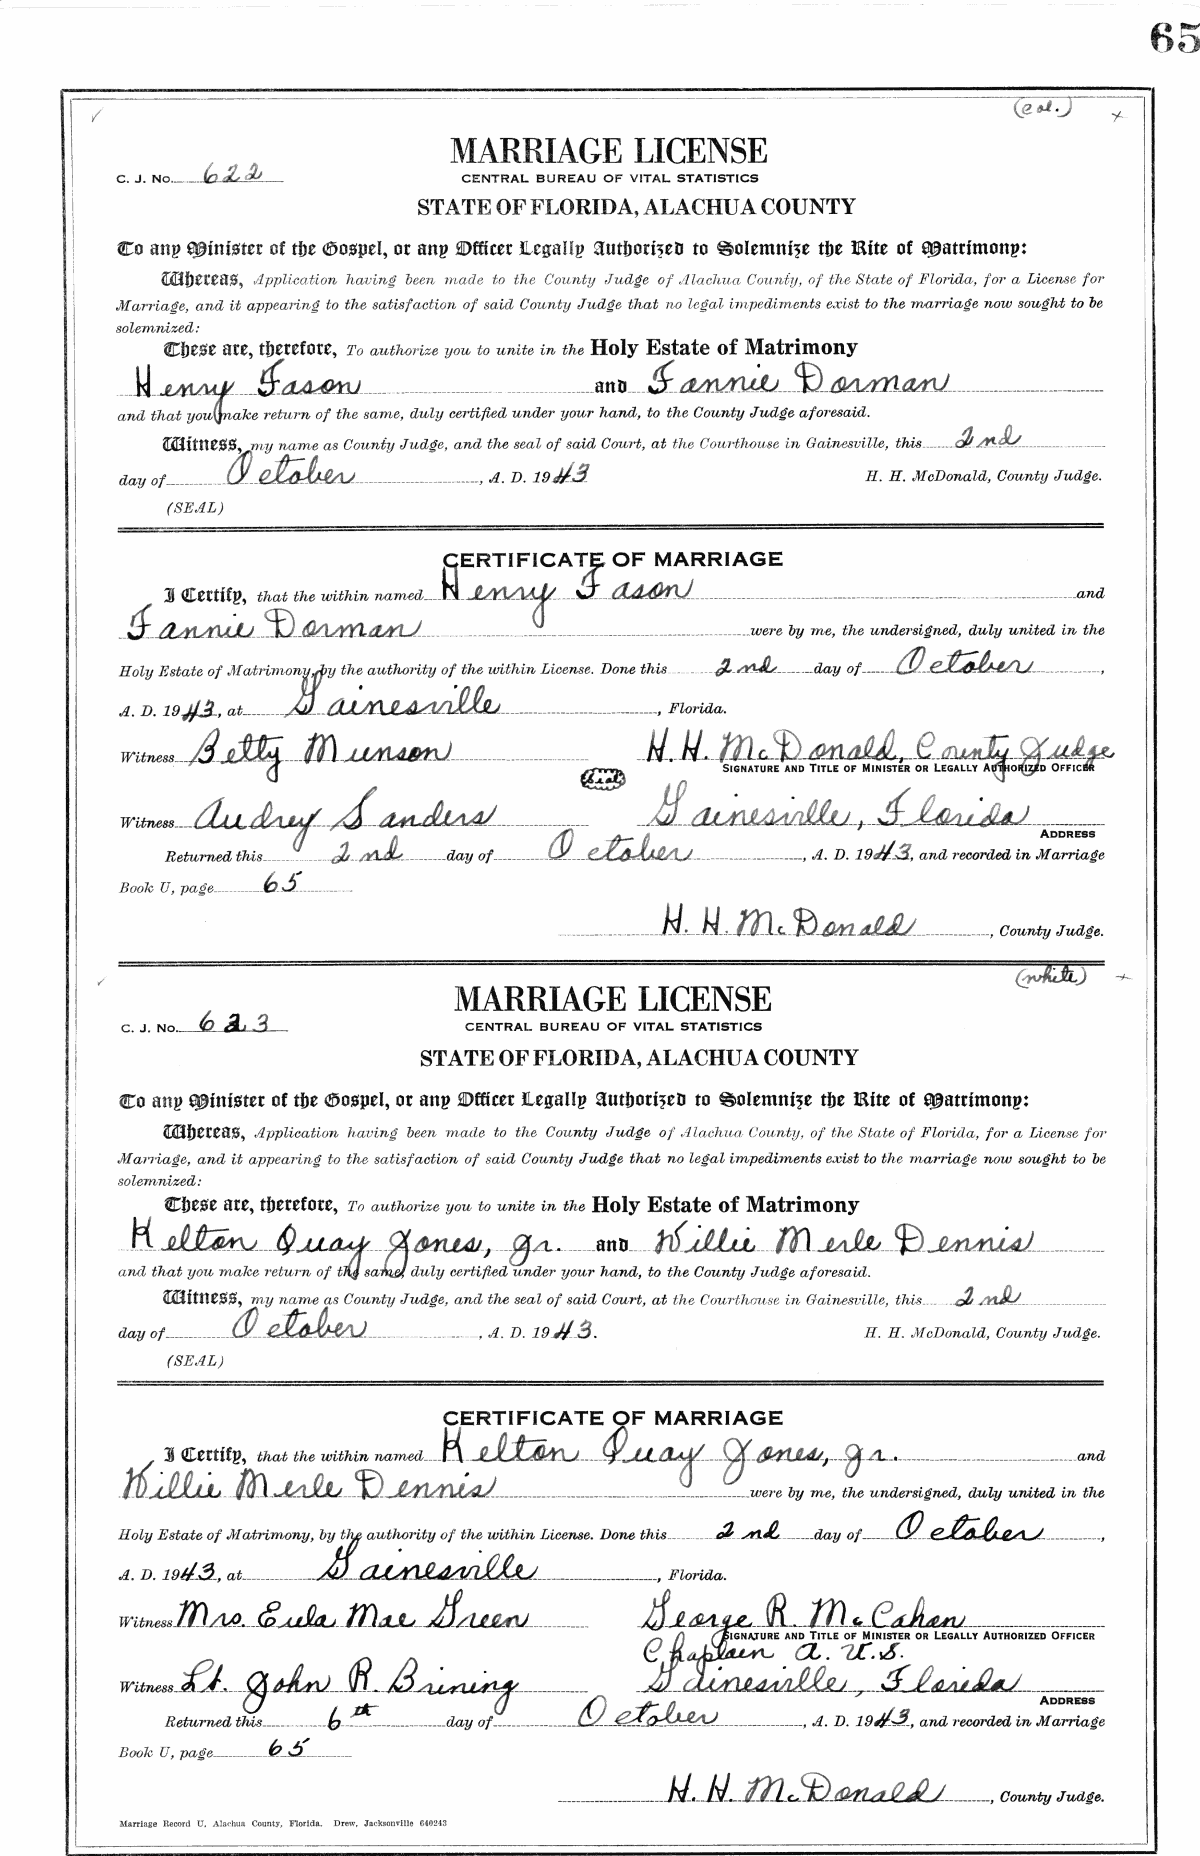 65
(col.)
MARRIAGE LICENSE
C. J. No. 622
CENTRAL BUREAU OF VITAL STATISTICS
STATE OF FLORIDA, ALACHUA COUNTY
To any Minister of the Gospel, or any Officer Legally Authorized to Solemnize the Rite of Matrimony:
Whereas, Application having been made to the County Judge of Alachua County, of the State of Florida, for a License for
Marriage, and it appearing to the satisfaction of said County Judge that no legal impediments exist to the marriage now sought to be
solemnized:
These are, therefore, To authorize you to unite in the Holy Estate of Matrimony
Henry Fason and Fannie Dorman
and that you make return of the same, duly certified under your hand, to the County Judge aforesaid.
Witness, my name as County Judge, and the seal of said Court, at the Courthouse in Gainesville, this 2nd
day of October, A. D. 1943 H. H. McDonald, County Judge.
(SEAL)
CERTIFICATE OF MARRIAGE
I Certify, that the within named Henry Fason and
Fannie Dorman were by me, the undersigned, duly united in the
Holy Estate of Matrimony, by the authority of the within License. Done this 2nd day of October,
A. D. 1943, at Gainesville, Florida.
Witness Betty Munson H. H. McDonald, County Judge
SIGNATURE AND TITLE OF MINISTER OR LEGALLY AUTHORIZED OFFICER
(Seal)
Witness Audrey Sanders Gainesville, Florida
ADDRESS
Returned this 2nd day of October, A. D. 1943, and recorded in Marriage
Book U, page 65
H. H. McDonald, County Judge.
(white)
MARRIAGE LICENSE
C. J. No. 623
CENTRAL BUREAU OF VITAL STATISTICS
STATE OF FLORIDA, ALACHUA COUNTY
To any Minister of the Gospel, or any Officer Legally Authorized to Solemnize the Rite of Matrimony:
Whereas, Application having been made to the County Judge of Alachua County, of the State of Florida, for a License for
Marriage, and it appearing to the satisfaction of said County Judge that no legal impediments exist to the marriage now sought to be
solemnized:
These are, therefore, To authorize you to unite in the Holy Estate of Matrimony
Kelton Quay Jones, Jr. and Willie Merle Dennis
and that you make return of the same, duly certified under your hand, to the County Judge aforesaid.
Witness, my name as County Judge, and the seal of said Court, at the Courthouse in Gainesville, this 2nd
day of October, A. D. 1943. H. H. McDonald, County Judge.
(SEAL)
CERTIFICATE OF MARRIAGE
I Certify, that the within named Kelton Quay Jones, Jr. and
Willie Merle Dennis were by me, the undersigned, duly united in the
Holy Estate of Matrimony, by the authority of the within License. Done this 2nd day of October,
A. D. 1943, at Gainesville, Florida.
Witness Mrs. Eula Mae Green George R. McCahan
SIGNATURE AND TITLE OF MINISTER OR LEGALLY AUTHORIZED OFFICER
Chaplain A. U. S.
Witness Lt. John R. Brining Gainesville, Florida
ADDRESS
Returned this 6th day of October, A. D. 1943, and recorded in Marriage
Book U, page 65
H. H. McDonald, County Judge.
Marriage Record U, Alachua County, Florida. Drew, Jacksonville 640243